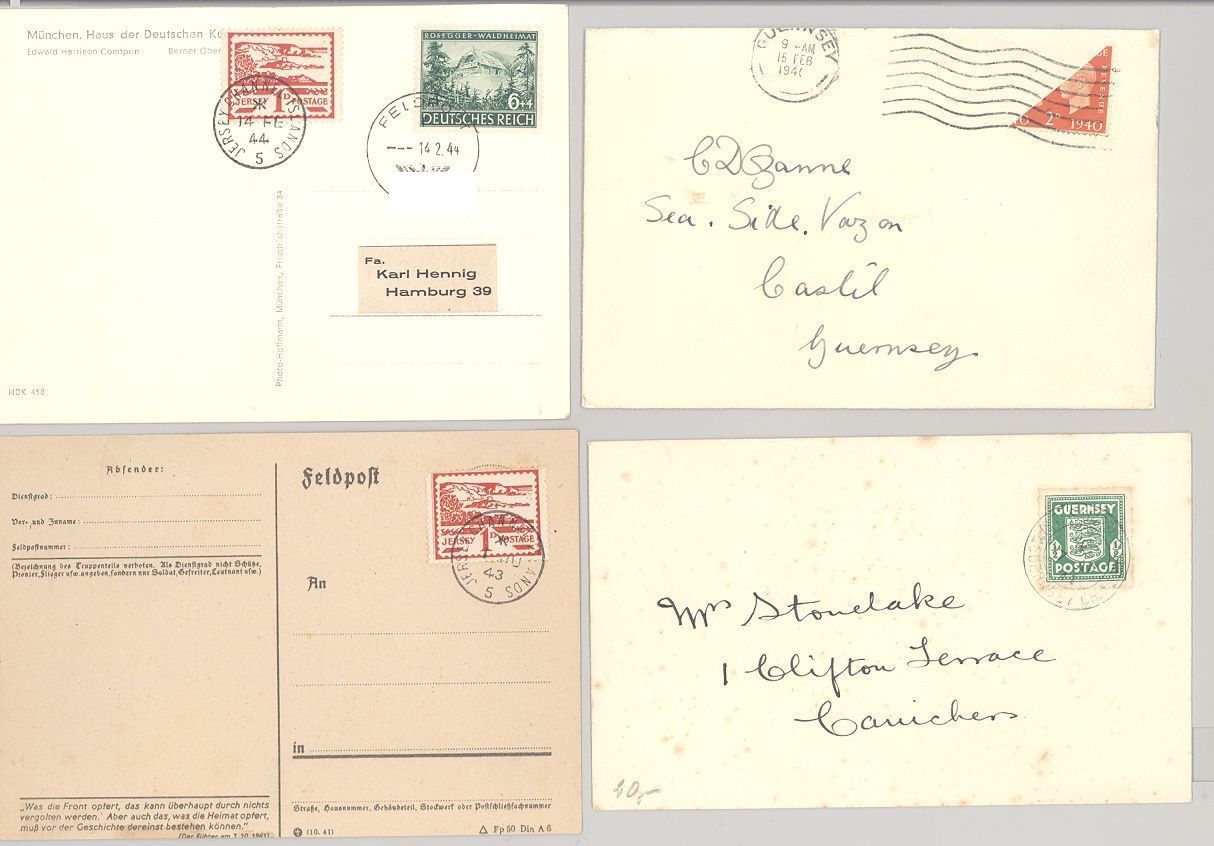 München. Haus der Deutschen
Edward Harrison Comtpon Berner Ober
JERSEY 1D POSTAGE
JERSEY CHANNEL ISLANDS
14 FE
44
5
ROSEGGER-WALDHEIMAT
6+4
DEUTSCHES REICH
14 2.44
Photo-Hoffmann, München, Friedrichstraße 34
Fa.
Karl Hennig
Hamburg 39
HDK 438
GUERNSEY
9 -AM
15 FEB
194
REVENUE
2D 1940
Sea. Side. Vazon
Castil
Guernsey
Absender:
Dienstgrad:
Vor- und Zuname:
Feldpostnummer:
(Bezeichnung des Truppenteils verboten. Als Dienstgrad nicht Schütze,
Pionier, Flieger usw. angeben, sondern nur Soldat, Gefreiter, Leutnant usw.)
Feldpost
JERSEY 1D POSTAGE
JERSEY CHANNEL ISLANDS
43
5
An
in
Straße, Hausnummer, Gebäudeteil, Stockwerk oder Postschließfachnummer
„Was die Front opfert, das kann überhaupt durch nichts
vergolten werden. Aber auch das, was die Heimat opfert,
muß vor der Geschichte dereinst bestehen können."
(Der Führer am 3. 10. 1941)
(10. 41)
Fp 50 Din A 6
GUERNSEY
½ ½
POSTAGE
Mrs Stonelake
1 Clifton Terrace
Canichers
20,-